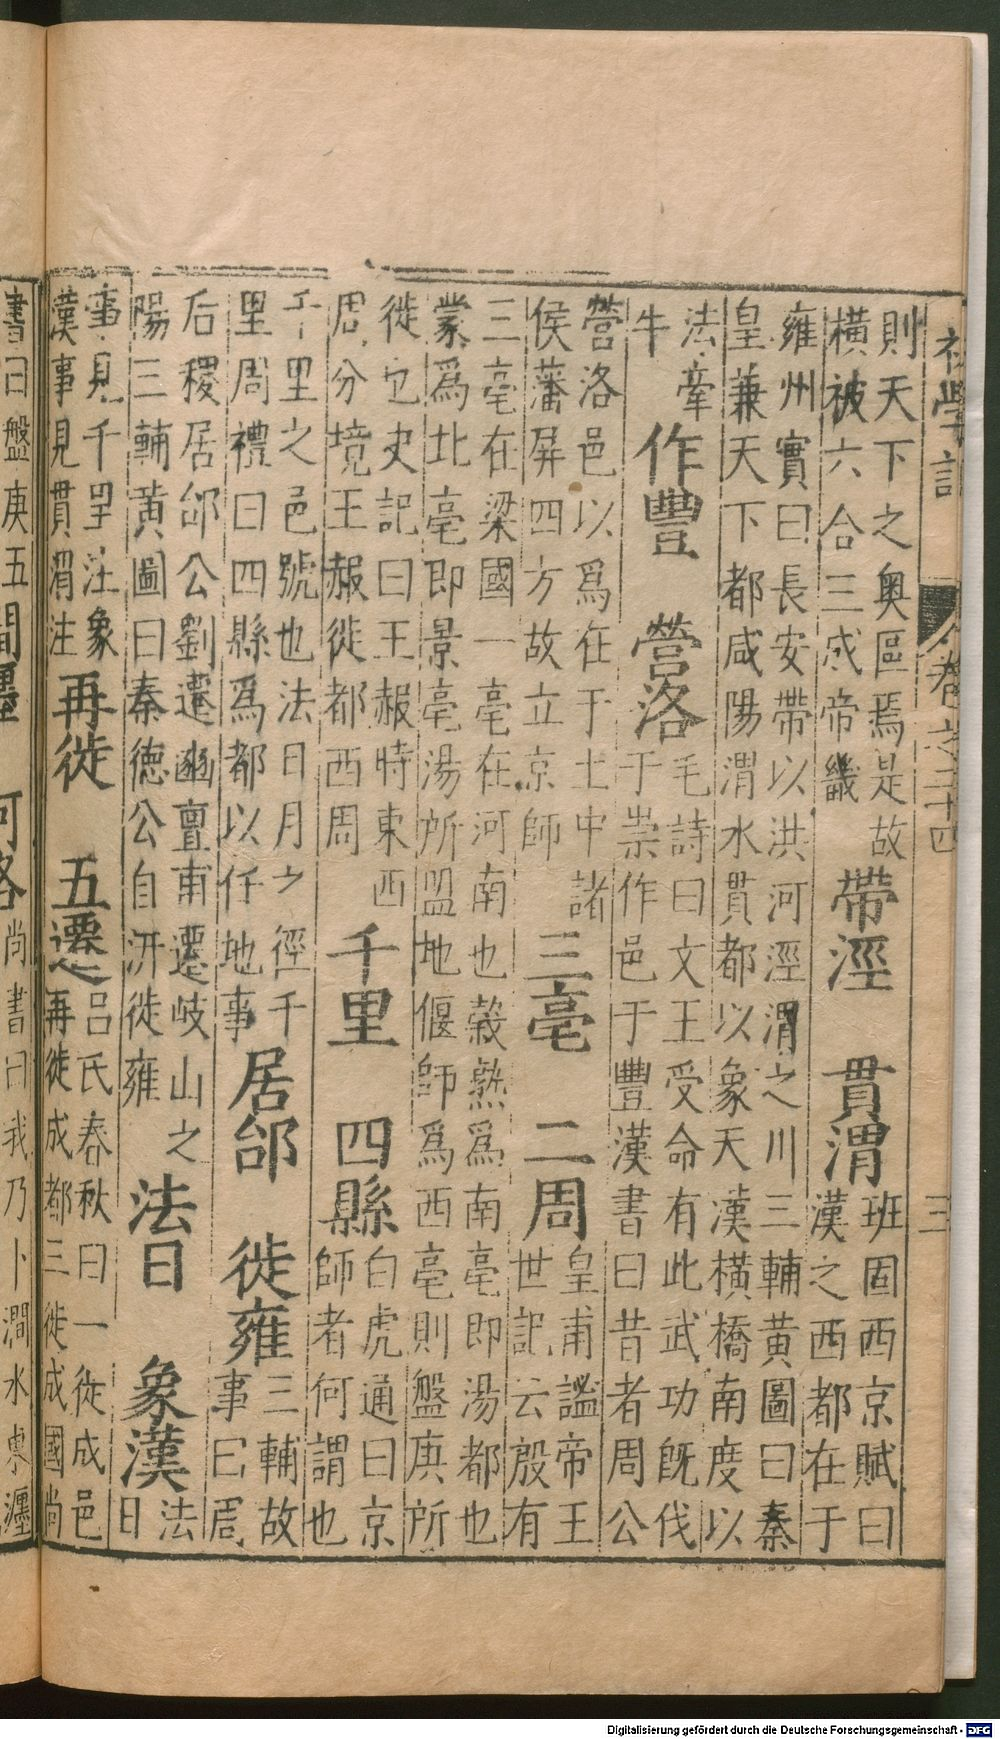 初學記 卷之二十四 三
則天下之奧區焉是故
橫被六合三成帝畿
帶涇 貫渭
班固西京賦曰
漢之西都在于
雍州實曰長安帶以洪河涇渭之川三輔黃圖曰秦
皇兼天下都咸陽渭水貫都以象天漢橫橋南度以
法牽
牛
作豐 營洛
毛詩曰文王受命有此武功既伐
于崇作邑于豐漢書曰昔者周公
營洛邑以爲在于土中諸
侯藩屏四方故立京師
三亳 二周
皇甫謐帝王
世記云殷有
三亳在梁國一亳在河南也穀熟爲南亳即湯都也
蒙爲北亳即景亳湯所盟地偃師爲西亳則盤庚所
徙也史記曰王赧時東西
周分境王赧徙都西周
千里 四縣
白虎通曰京
師者何謂也
千里之邑號也法日月之徑千
里周禮曰四縣爲都以任地事
居邰 徙雍
三輔故
事曰周
后稷居邰公劉遷豳亶甫遷岐山之
陽三輔黃圖曰秦德公自汧徙雍
法日 象漢
法
日
事見千里注象
漢事見貫渭注
再徙 五遷
呂氏春秋曰一徙成邑
再徙成都三徙成國尚
書曰盤庚五
間瀍 河洛
尚書曰我乃卜澗水東瀍
Digitalisierung gefördert durch die Deutsche Forschungsgemeinschaft - DFG